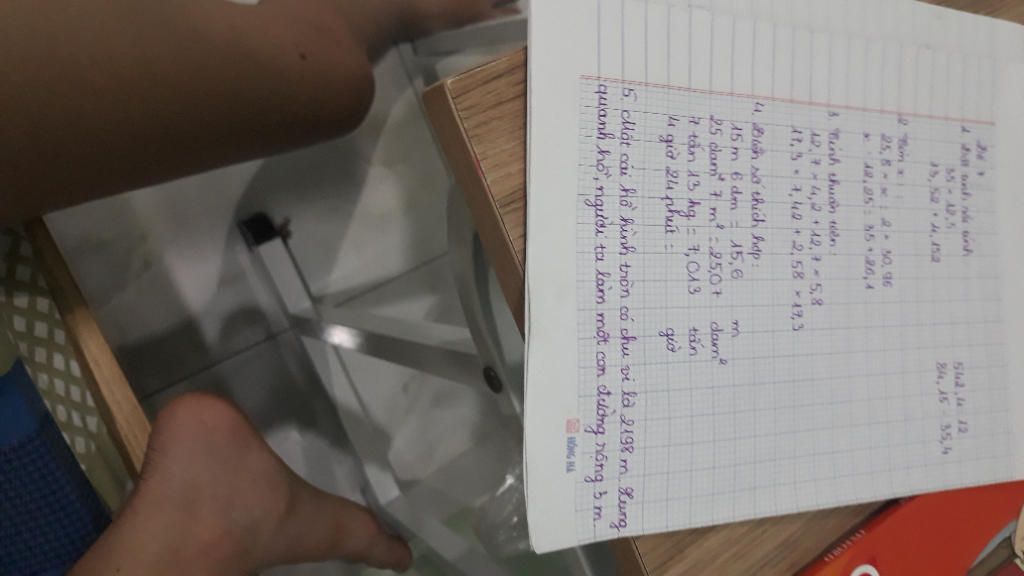 Đề 7
1. Đặt tính rồi tính
35 × 12,5 542,4 : 12
13,52 + 4,152 84,15 - 35,4
2. Tìm x :
25,8 × x : 2 = 70,95
x : 12,25 : 35 = 20,1
3. Tính thuận tiện :
12,7 × 4,2 + 12,7 × 5,8
17,3 × 7,42 + 2,58 × 17,3
4. Điền số thích hợp :
15 m 6 dm = 15,6 m
25 dam² 7 m² = 25,07 dam²
7 tấn 13 kg = 7,013 tấn
4 giờ 24 phút = giờ
5. Một cái hồ hình tròn có chu vi là 2198 m. Xung
quanh hồ, người ta làm một con đường rộng 3 m
HỒNG HÀ